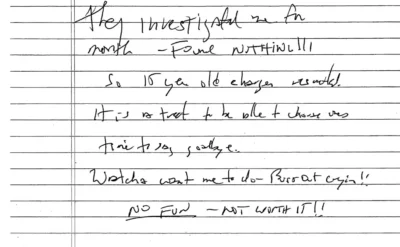 they investigated me for
month - Found NOTHING!!!
So 15 year old charges resulted.
It is a treat to be able to choose ones
time to say goodbye.
Watcha want me to do - Burst out crying!!
NO FUN - NOT WORTH IT!!